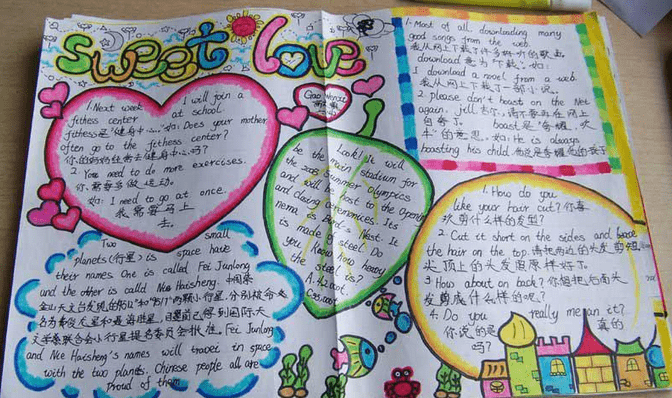 sweet love
1. Next week I will join a
fitness center at school
fitness是"健身中心". 如: Does your mother
often go to the fitness center?
你的妈妈经常去健身中心吗?
2. You need to do more exercises.
你需要多做运动。
如: I need to go at once.
我需要马上
去。
Two small
planets(行星) in space have
their names. One is called Fei Junlong
and the other is called Nie Haisheng. 中国紫
金山天文台发现的
两颗小行星,分别被命
名为费俊龙星和聂海胜星,
得到国际天
文学联合会小行星提名委员会批准. Fei Junlong
and Nie Haisheng's names will travel in space
with the two plants. Chinese people all are
proud of them
Look! It will
be the main stadium for
the 2008 Summer Olympics
and will be host to the Opening
and Closing ceremonies. Its
name is Bird's Nest. It
is made of steel. Do
you know how heavy
the steel is?
A. 42000t.
1. Most of all downloading many
good songs from the web.
我从网上下载了许多好听的歌曲
download 意为"下载". 如:
I download a novel from a web.
我从网上下载了一部小说。
2. please don't boast on the Net
again, jill 吉尔,请不要再在网上
自夸了. boast是"夸耀,吹
牛"的意思. 如: He is always
boasting his child. 他总是夸耀他的孩子
1. How do you
like your hair cut? 你喜
欢剪什么样的发型?
2. Cut it short on the sides and
the hair on the top. 请把两边的头发剪短,
头顶上的头发照原样好了.
3. How about on back? 你想把后面头
发剪成什么样的呢?
4. Do you really mean it?
你说的是 真的
吗?